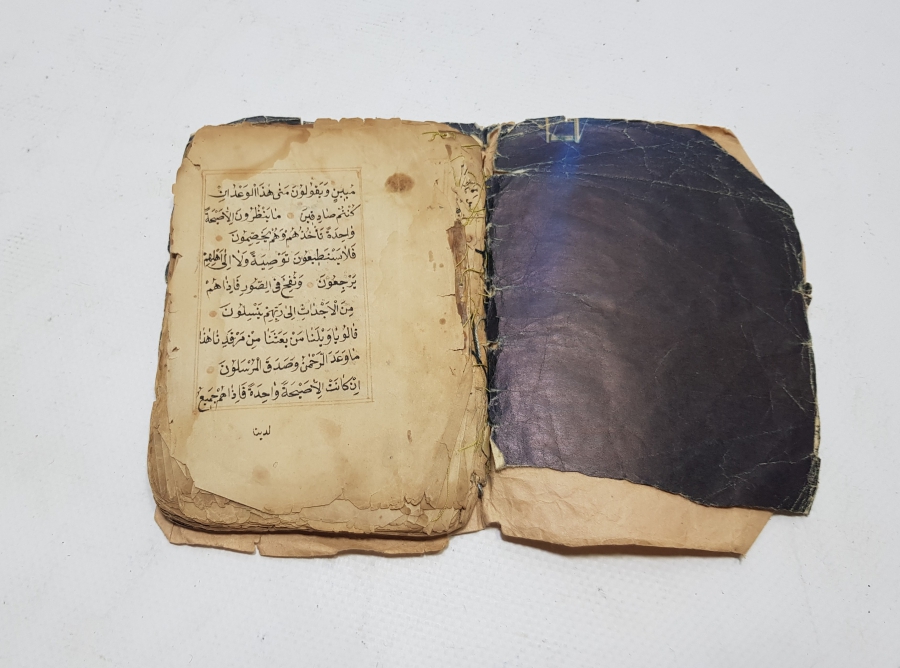 مُبِينٍ وَيَقُولُونَ مَتٰى هٰذَا الْوَعْدُ اِنْ
كُنْتُمْ صَادِقِينَ مَا يَنْظُرُونَ اِلَّا صَيْحَةً
وَاحِدَةً تَأْخُذُهُمْ وَهُمْ يَخِصِّمُونَ
فَلَا يَسْتَطِيعُونَ تَوْصِيَةً وَلَا اِلٰى اَهْلِهِمْ
يَرْجِعُونَ وَنُفِخَ فِي الصُّورِ فَاِذَا هُمْ
مِنَ الْاَجْدَاثِ اِلٰى رَبِّهِمْ يَنْسِلُونَ
قَالُوا يَا وَيْلَنَا مَنْ بَعَثَنَا مِنْ مَرْقَدِنَا هٰذَا
مَا وَعَدَ الرَّحْمٰنُ وَصَدَقَ الْمُرْسَلُونَ
اِنْ كَانَتْ اِلَّا صَيْحَةً وَاحِدَةً فَاِذَا هُمْ جَمِيعٌ
لدينا